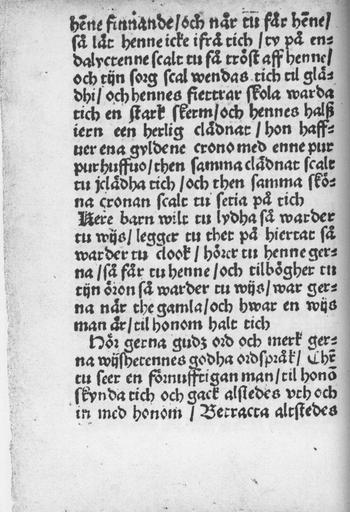 hēne finnande/och när tu får hēne/
så låt henne icke ifrå tich/ty på en-
dalyctenne scalt tu få tröst aff henne/
och tijn sorg scal wendas tich til glä-
dhi/och hennes fiettrar skola warda
tich en stark skerm/och hennes halß
iern een herlig clädnat/hon haff-
uer ena gyldene crono med enne pur
purhuffuo/then samma clädnat scalt
tu jclädha tich/och then samma skö-
na cronan scalt tu setia på tich
Kere barn wilt tu lydha så warder
tu wijs/legger tu thet på hiertat så
warder tu clook/hörer tu henne ger-
na/så får tu henne/och tilbögher tu
tijn öron så warder tu wijs/war ger-
na när the gamla/och hwar en wijs
man är/til honom halt tich
Hör gerna gudz ord och merk ger-
na wijshetennes godha ordspråk/Thē
tu seer en förnufftigan man/til honō
skynda tich och gack alstedes vth och
in med honom/Betracta altstedes